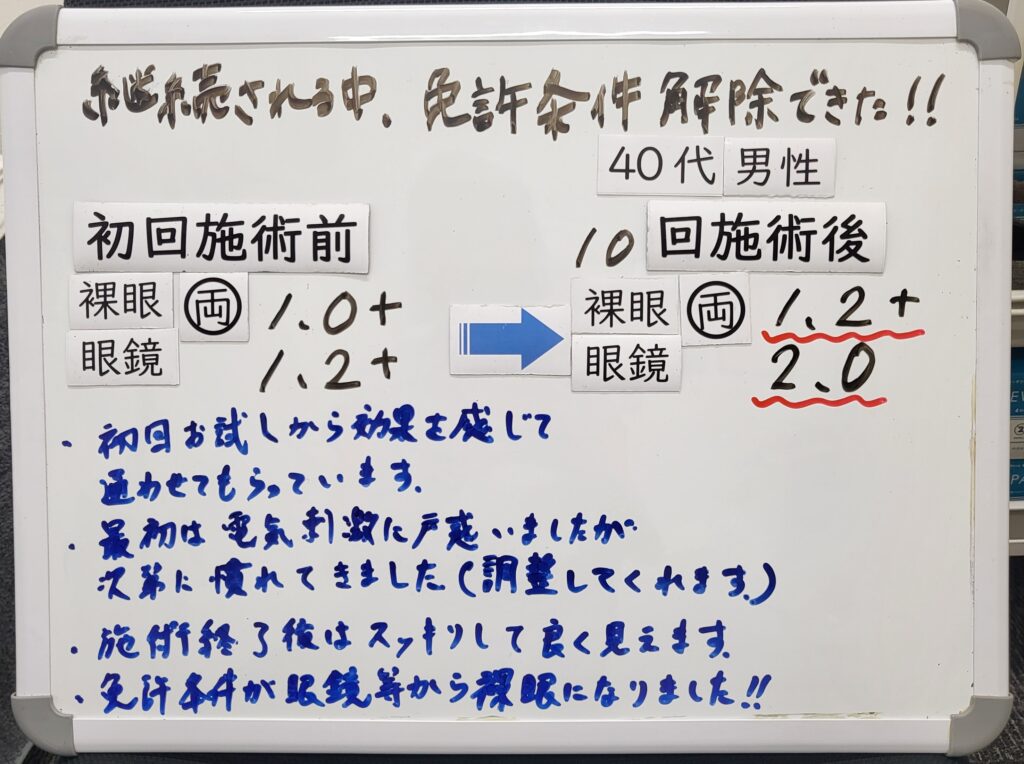 継続される中、免許条件解除できた!!
40代 男性
初回施術前
10回施術後
裸眼 両 1.0+
眼鏡 1.2+
裸眼 両 1.2+
眼鏡 2.0
・初回お試しから効果を感じて
通わせてもらっています。
・最初は電気刺激に戸惑いましたが
次第に慣れてきました(調整してくれます。)
・施術終了後はスッキリして良く見えます。
・免許条件が眼鏡等から裸眼になりました!!